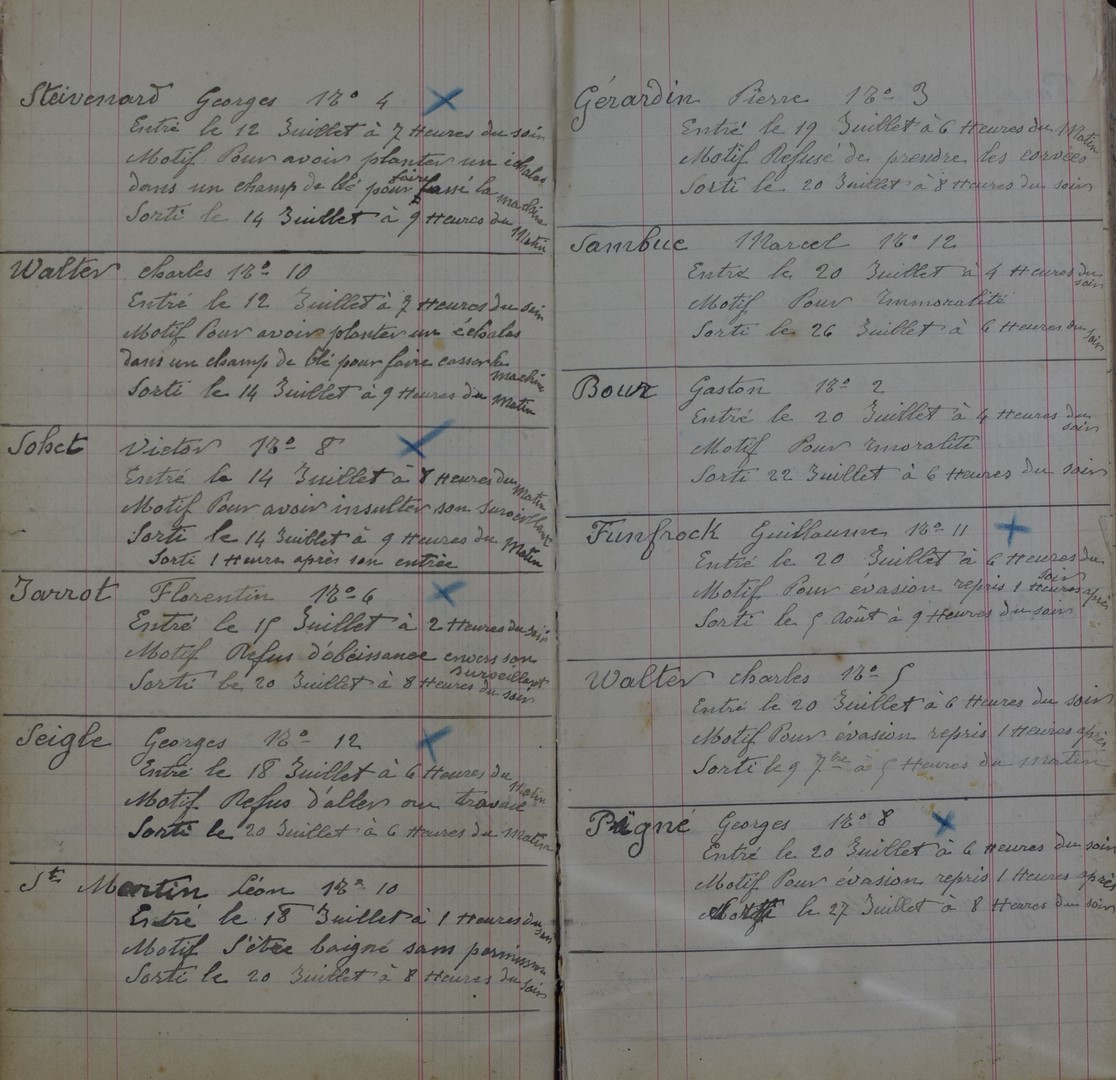 Steivenard Georges No 4
Entré le 12 Juillet à 7 Heures du soir
Motif Pour avoir planter un échalas
dans un champ de blé pour faire cassé la machine
Sorti le 14 Juillet à 9 Heures du Matin
Walter charles No 10
Entré le 12 Juillet à 7 Heures du soir
Motif Pour avoir planter un échalas
dans un champ de blé pour faire casser la machine
Sorti le 14 Juillet à 9 Heures du Matin
Sohet Victor No 8
Entré le 14 Juillet à 8 Heures du Matin
Motif Pour avoir insulter son surveillant
Sorti le 14 Juillet à 9 Heures du Matin
Sorti 1 Heure après son entrée
Jarrot Florentin No 6
Entré le 15 Juillet à 2 Heures du soir
Motif Refus d'obéissance envers son surveillant
Sorti le 20 Juillet à 8 Heures du soir
Seigle Georges No 12
Entré le 18 Juillet à 6 Heures du Matin
Motif Refus d'aller au travail
Sorti le 20 Juillet à 6 Heures du Matin
St Martin Léon No 10
Entré le 18 Juillet à 1 Heures du soir
Motif S'être baigné sans permission
Sorti le 20 Juillet à 8 Heures du soir
Gérardin Pierre No 3
Entré le 19 Juillet à 6 Heures du Matin
Motif Refusé de prendre les corvées
Sorti le 20 Juillet à 8 Heures du soir
Sambuc Marcel No 12
Entré le 20 Juillet à 4 Heures du soir
Motif Pour Immoralité
Sorti le 26 Juillet à 6 Heures du soir
Bour Gaston No 2
Entré le 20 Juillet à 4 Heures du soir
Motif Pour Imoralité
Sorti 22 Juillet à 6 Heures du soir
Funfrock Guillaume No 11
Entré le 20 Juillet à 6 Heures du soir
Motif Pour évasion repris 1 Heures après
Sorti le 5 Août à 9 Heures du soir
Walter charles No 5
Entré le 20 Juillet à 6 Heures du soir
Motif Pour évasion repris 1 Heures après
Sorti le 9 7bre à 5 Heures du matin
Pigné Georges No 8
Entré le 20 Juillet à 6 Heures du soir
Motif Pour évasion repris 1 Heures après
le 27 Juillet à 8 Heures du soir